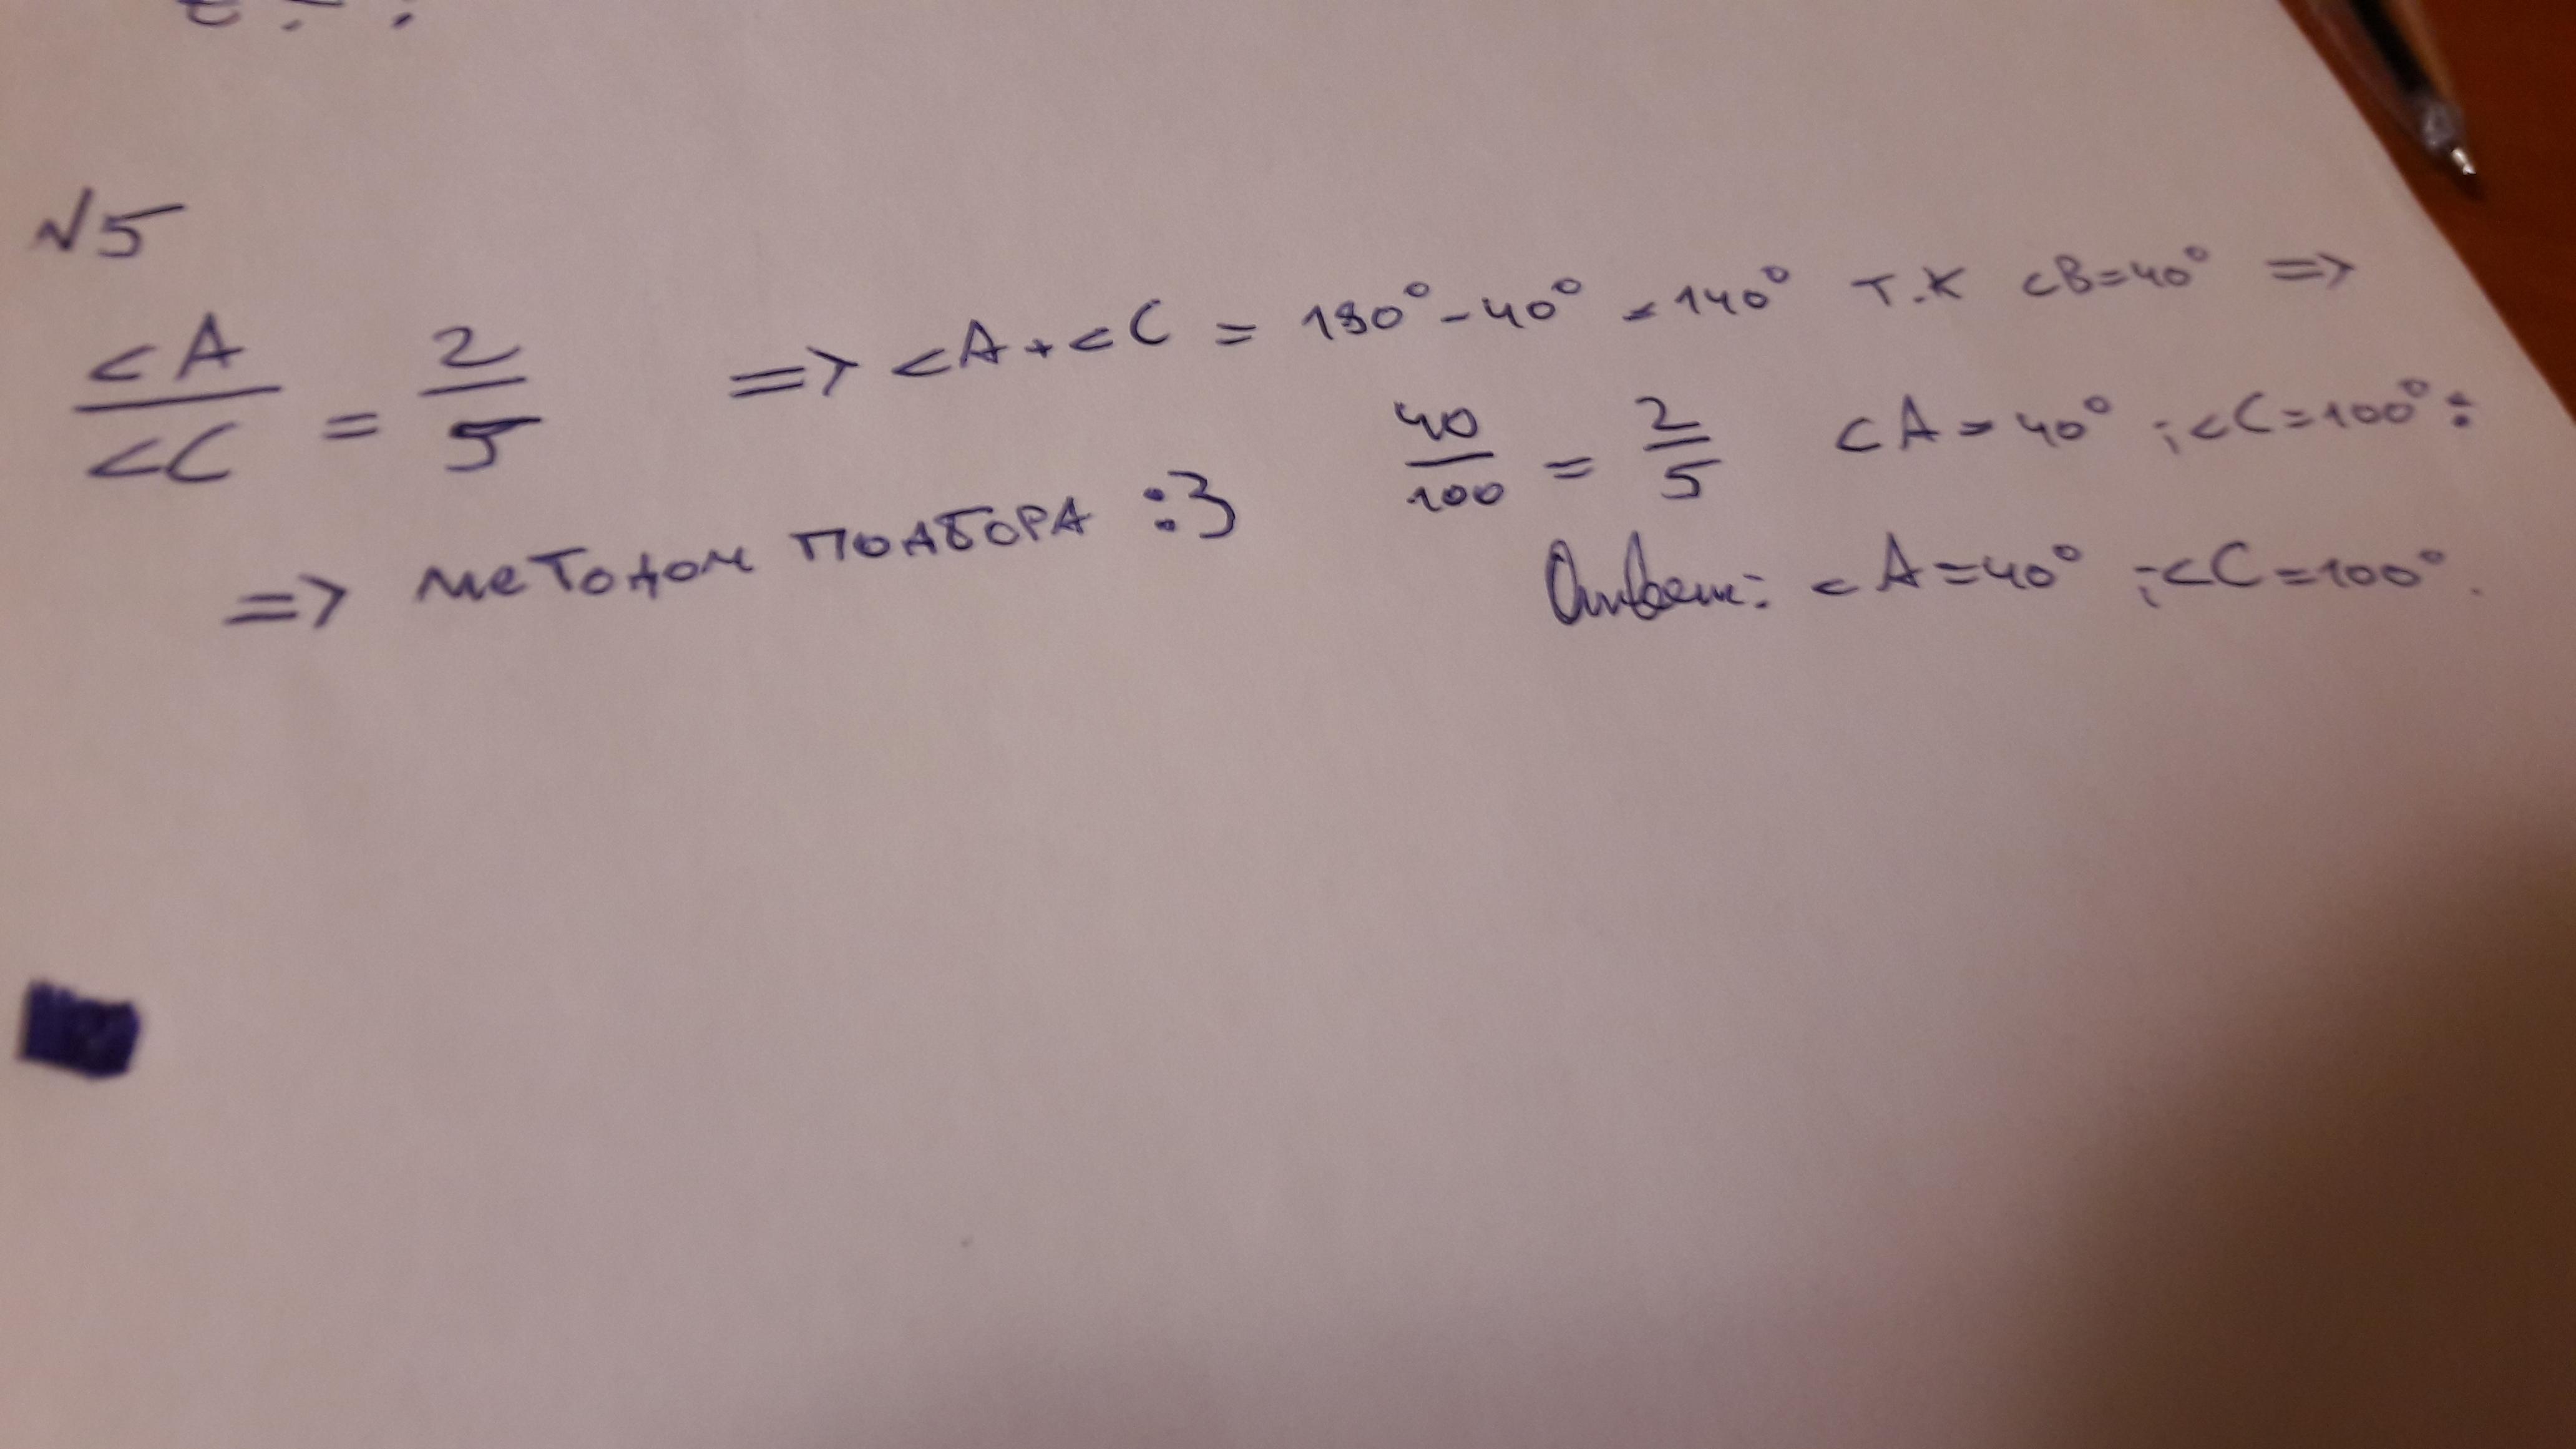 №5
<A/<C = 2/5 => <A + <C = 180° - 40° = 140° т.к <B=40° =>
=> методом подбора :3 40/100 = 2/5 <A = 40° ; <C = 100° :
Ответ: <A = 40° ; <C = 100° .